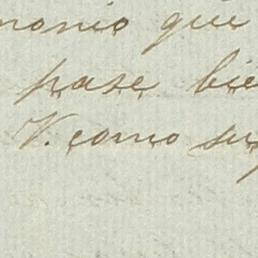 monio que
pase bie
V. como su